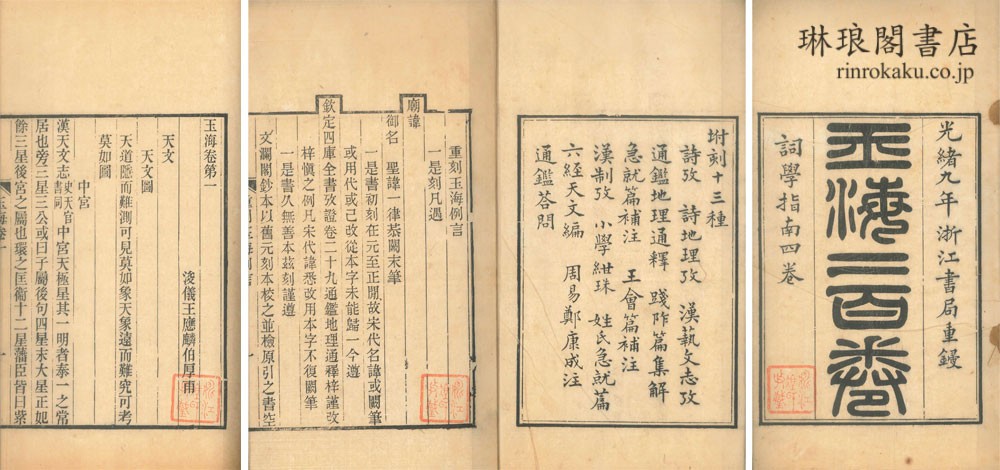 琳琅閣書店
rinrokaku.co.jp
光緒九年浙江書局重鋟
玉海二百卷
詞學指南四卷
坿刻十三種
詩攷 詩地理攷 漢藝文志攷
通鑑地理通釋 踐阼篇集解
急就篇補注 王會篇補注
漢制攷 小學紺珠 姓氏急就篇
六經天文編 周易鄭康成注
通鑑答問
重刻玉海例言
一是刻凡遇
廟諱
御名 聖諱一律恭闕末筆
一是書初刻在元至正閒故宋代名諱或闕筆
或用代或已改從本字未能歸一今遵
欽定四庫全書攷證卷二十九通鑑地理通釋梓謹改
梓愼之例凡宋代諱悉改用本字不復闕筆
一是書久無善本茲刻謹遵
文瀾閣鈔本以舊元刻本校之並檢原引之書空
玉海卷第一
浚儀王應麟伯厚甫
天文
天文圖
天道隱而難測可見莫如象天象遠而難究可考
莫如圖
中宮
漢天文志史天官書同中宮天極星其一明者泰一之常
居也旁三星三公或曰子屬後句四星末大星正妃
餘三星後宮之屬也環之匡衛十二星藩臣皆曰紫